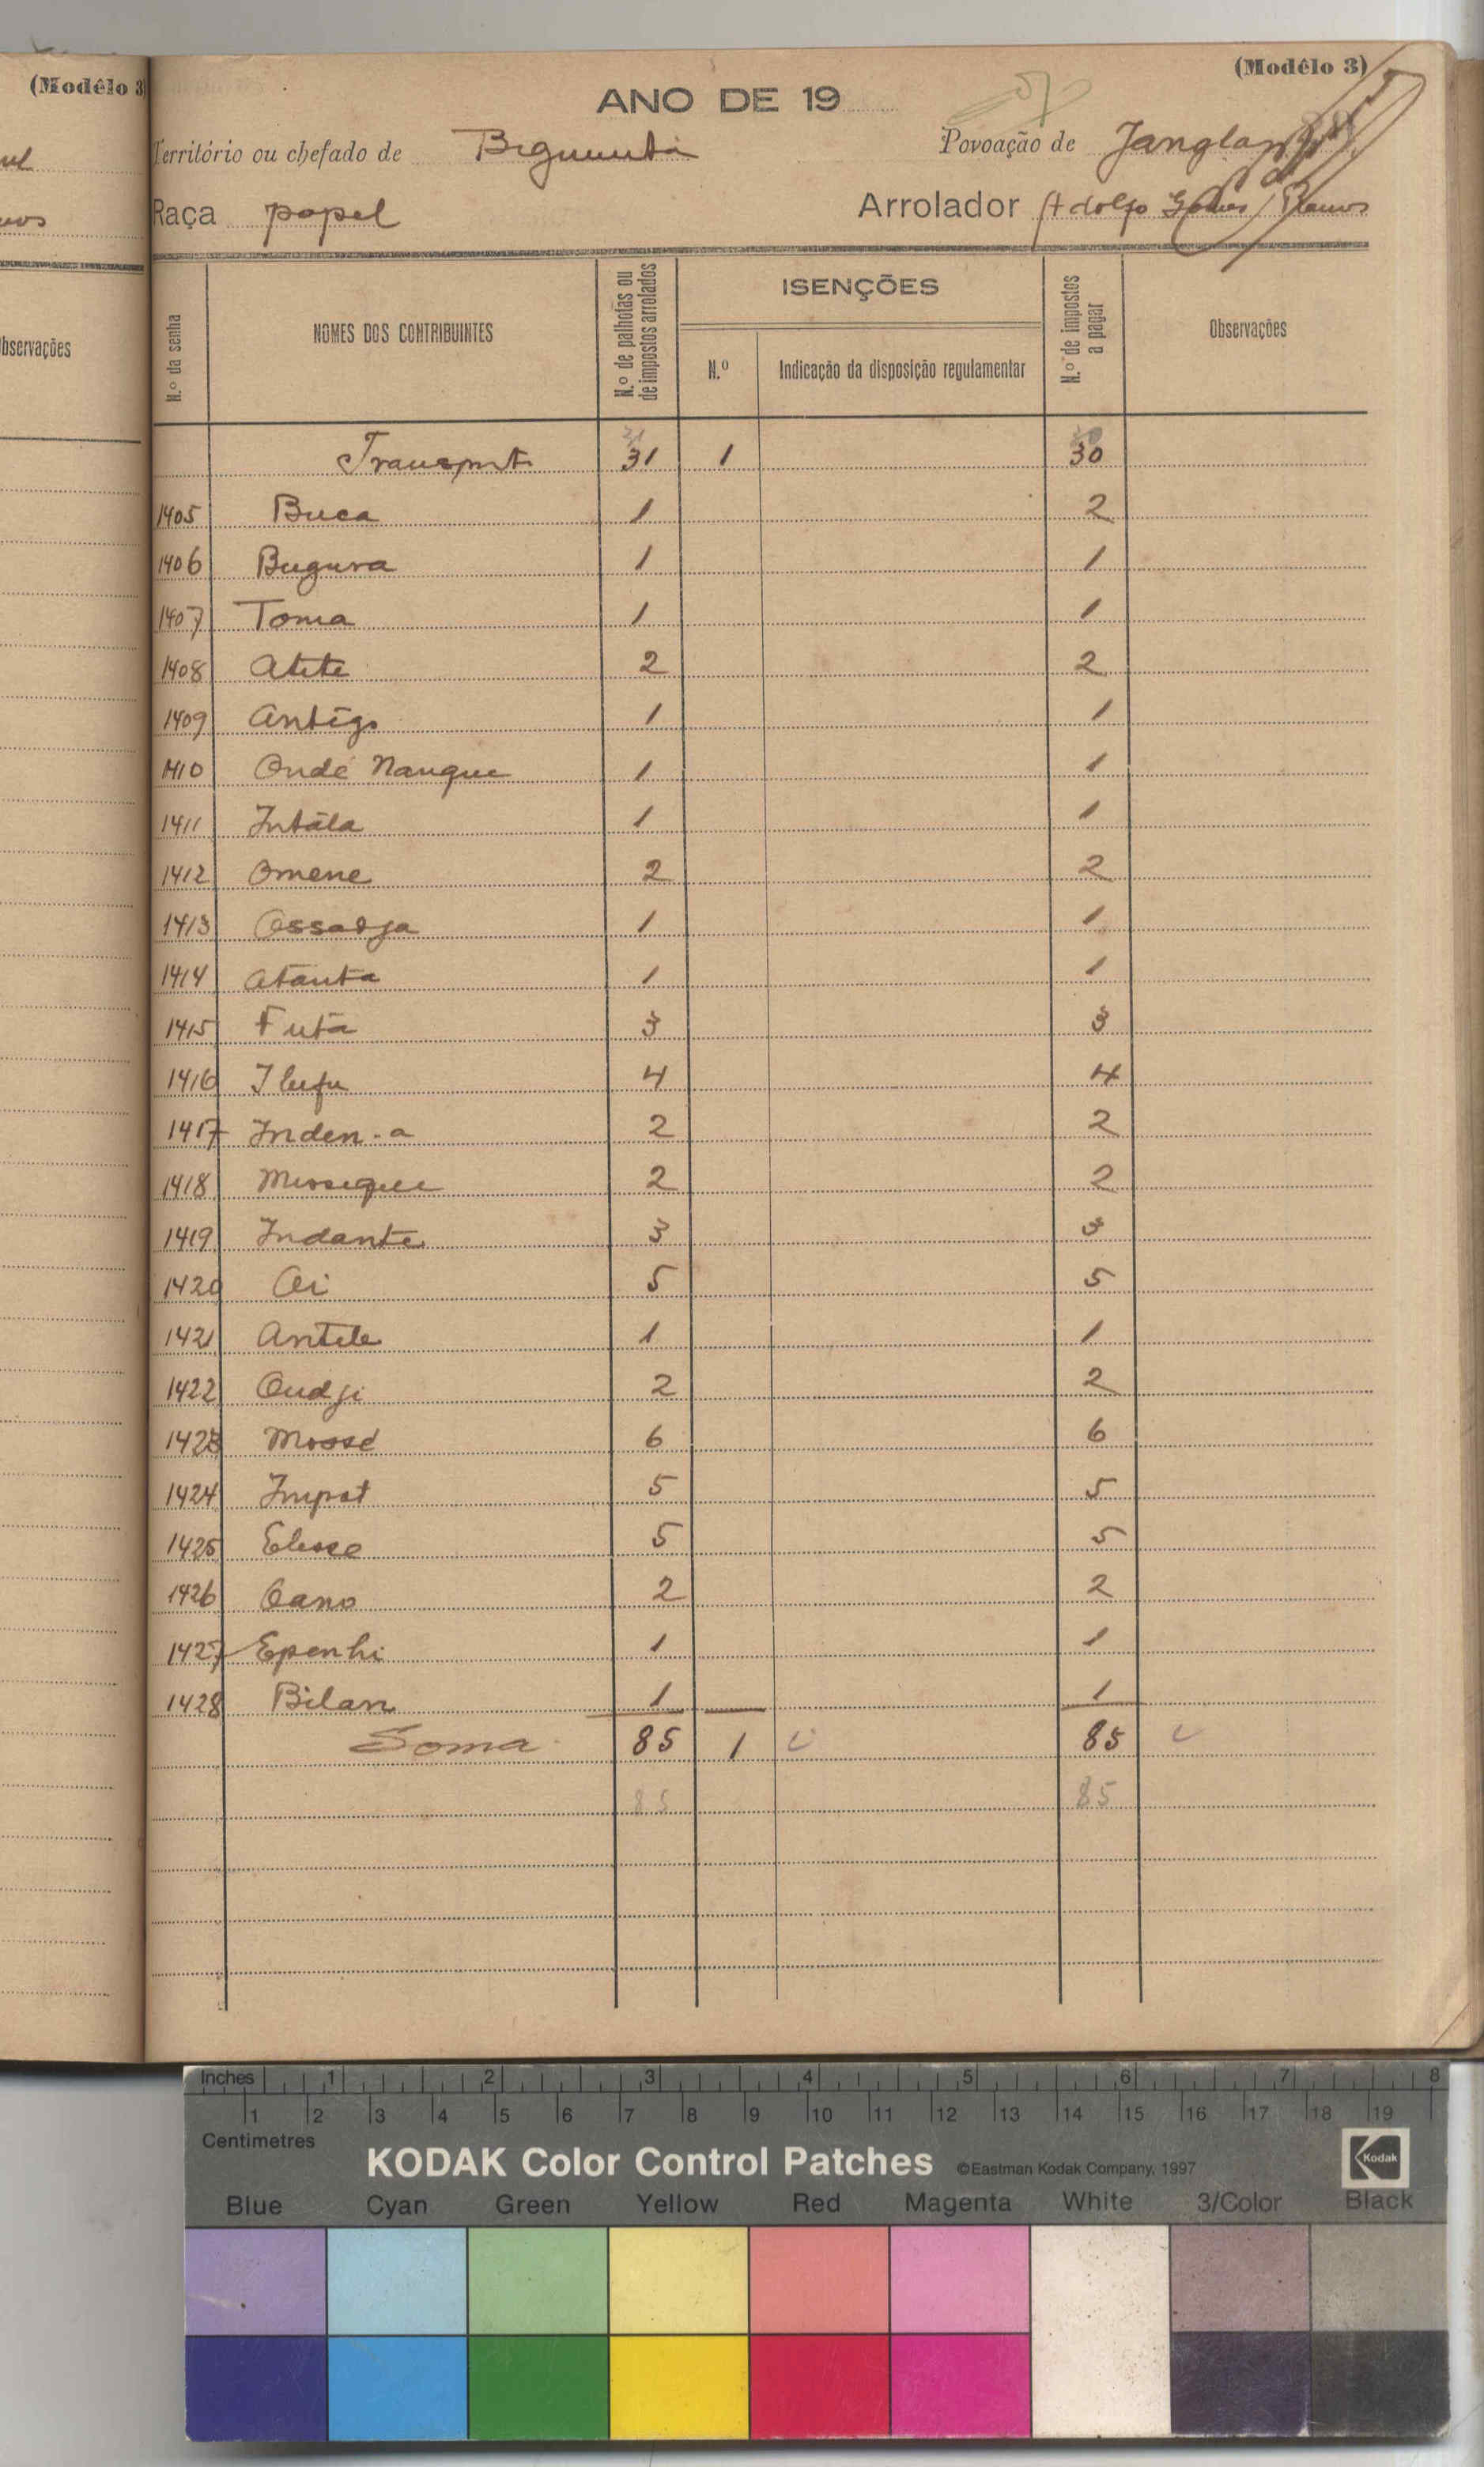 (Modêlo 3)
(Modêlo 3)
ANO DE 19
Território ou chefado de Bigumita
Povoação de
Raça papel
Arrolador Adolfo Gomes Ramos
Observações
N.º da senha
NOMES DOS CONTRIBUINTES
N.º de palhotas ou de impostos arrolados
ISENÇÕES
N.º
Indicação da disposição regulamentar
N.º de impostos a pagar
Observações
Transporte 31 1 30
1405 Buca 1 2
1406 Bugura 1 1
1407 Toma 1 1
1408 Atite 2 2
1409 Antigo 1 1
1410 Ondé Nanque 1 1
1411 Intála 1 1
1412 Omene 2 2
1413 Ossadja 1 1
1414 Atanta 1 1
1415 Futa 3 3
1416 Ilufu 4 4
1417 Inden-a 2 2
1418 2 2
1419 Indante 3 3
1420 Oi 5 5
1421 Antile 1 1
1422 Oudji 2 2
1423 Mossé 6 6
1424 Impot 5 5
1425 Elesse 5 5
1426 Cano 2 2
1427 Epenhi 1 1
1428 Bilan 1 1
Soma 85 1 85
85 85
Inches 1 2 3 4 5 6 7 8
1 2 3 4 5 6 7 8 9 10 11 12 13 14 15 16 17 18 19
Centimetres
KODAK Color Control Patches ©Eastman Kodak Company, 1997 Kodak
Blue Cyan Green Yellow Red Magenta White 3/Color Black